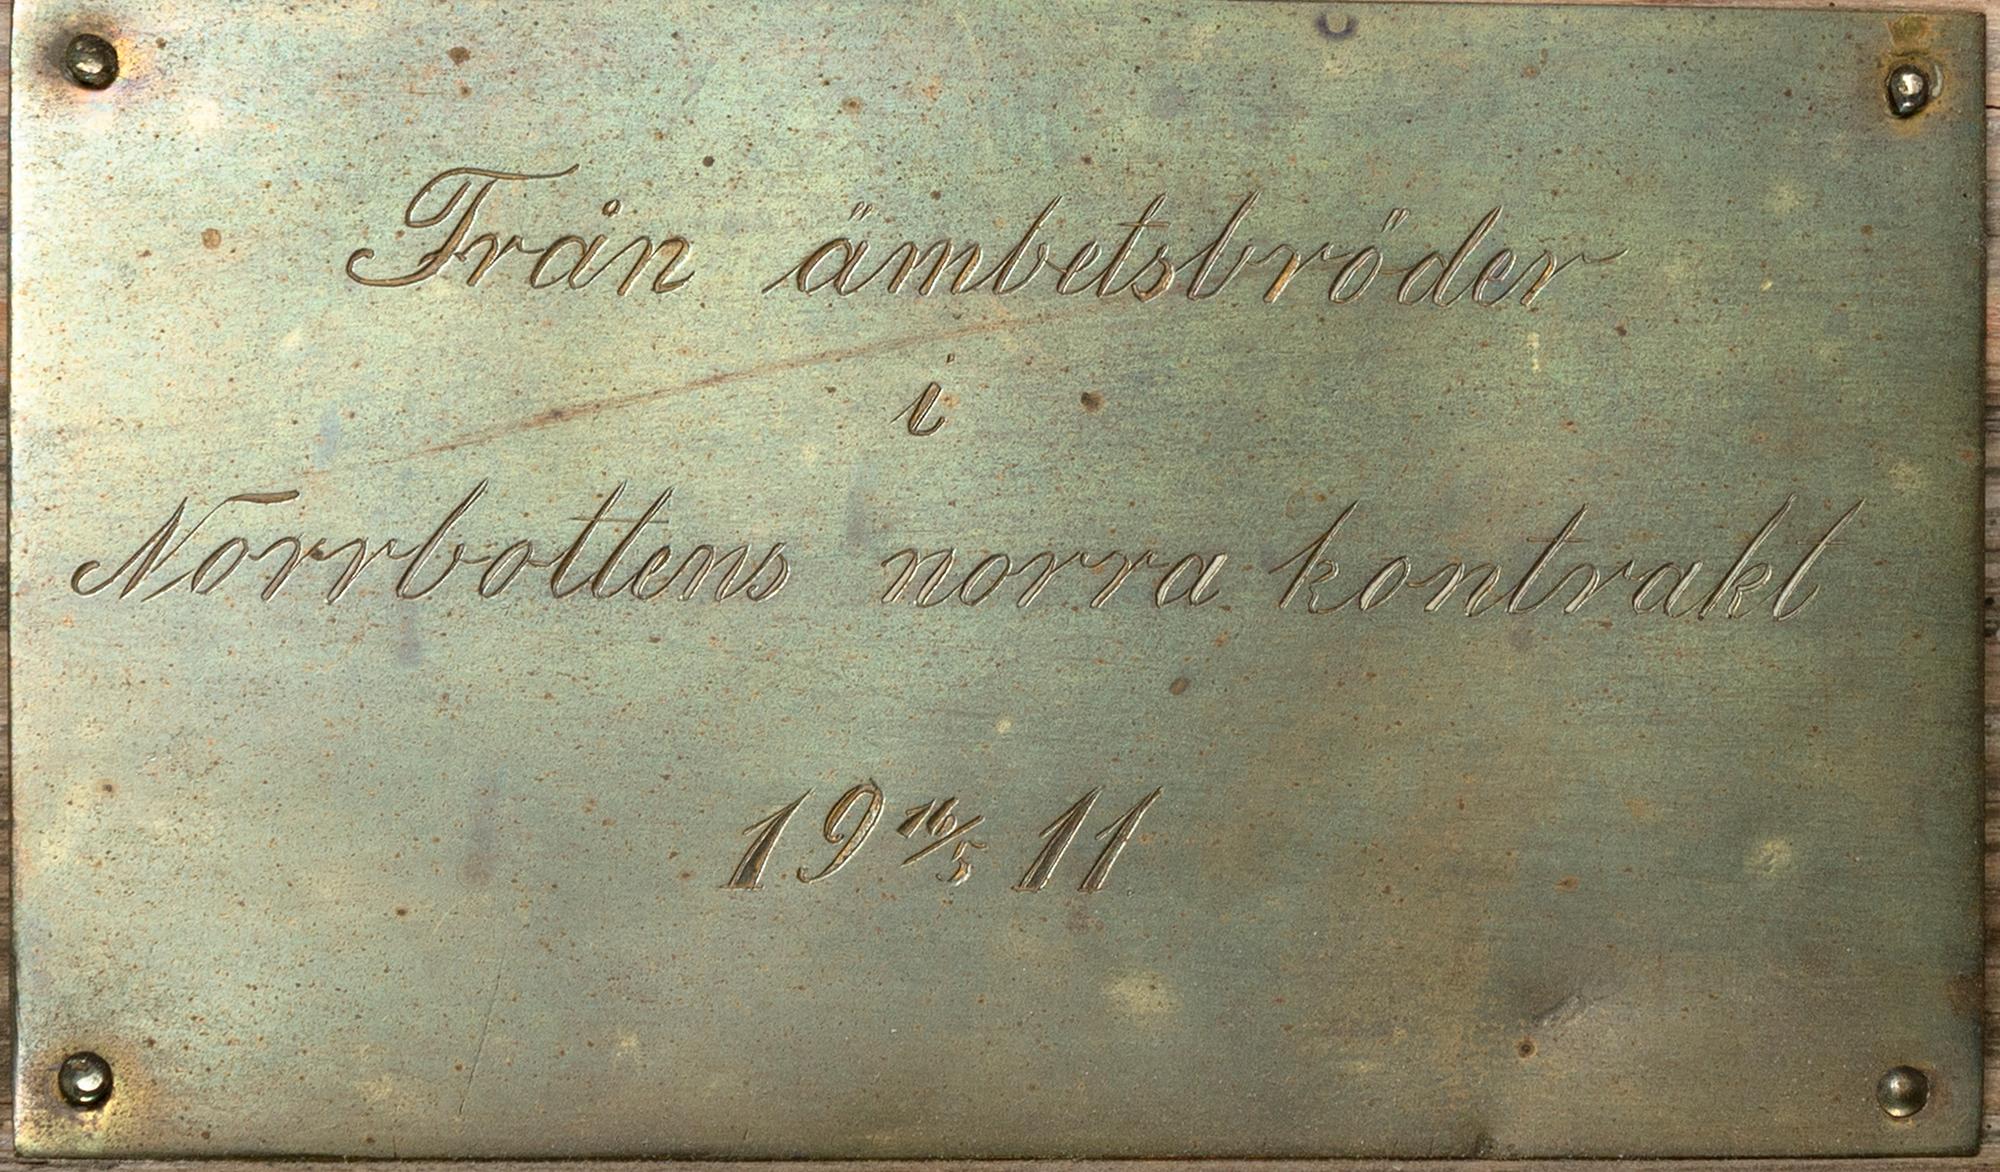 Från ämbetsbröder
i
Norrbottens norra kontrakt
19 16/5 11